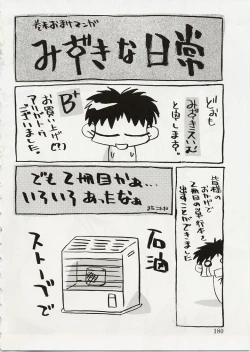 巻末おまけマンガ
みずきな日常
どおも
みずきえいむ
と申します。
B+
お買い上げ(?)
アリガトウ
ございました。
皆様の
おかげで
2冊目の単行本を
出すことができました
でも2冊目かぁ…
いろいろあったなぁ
石油
ストーブで
180